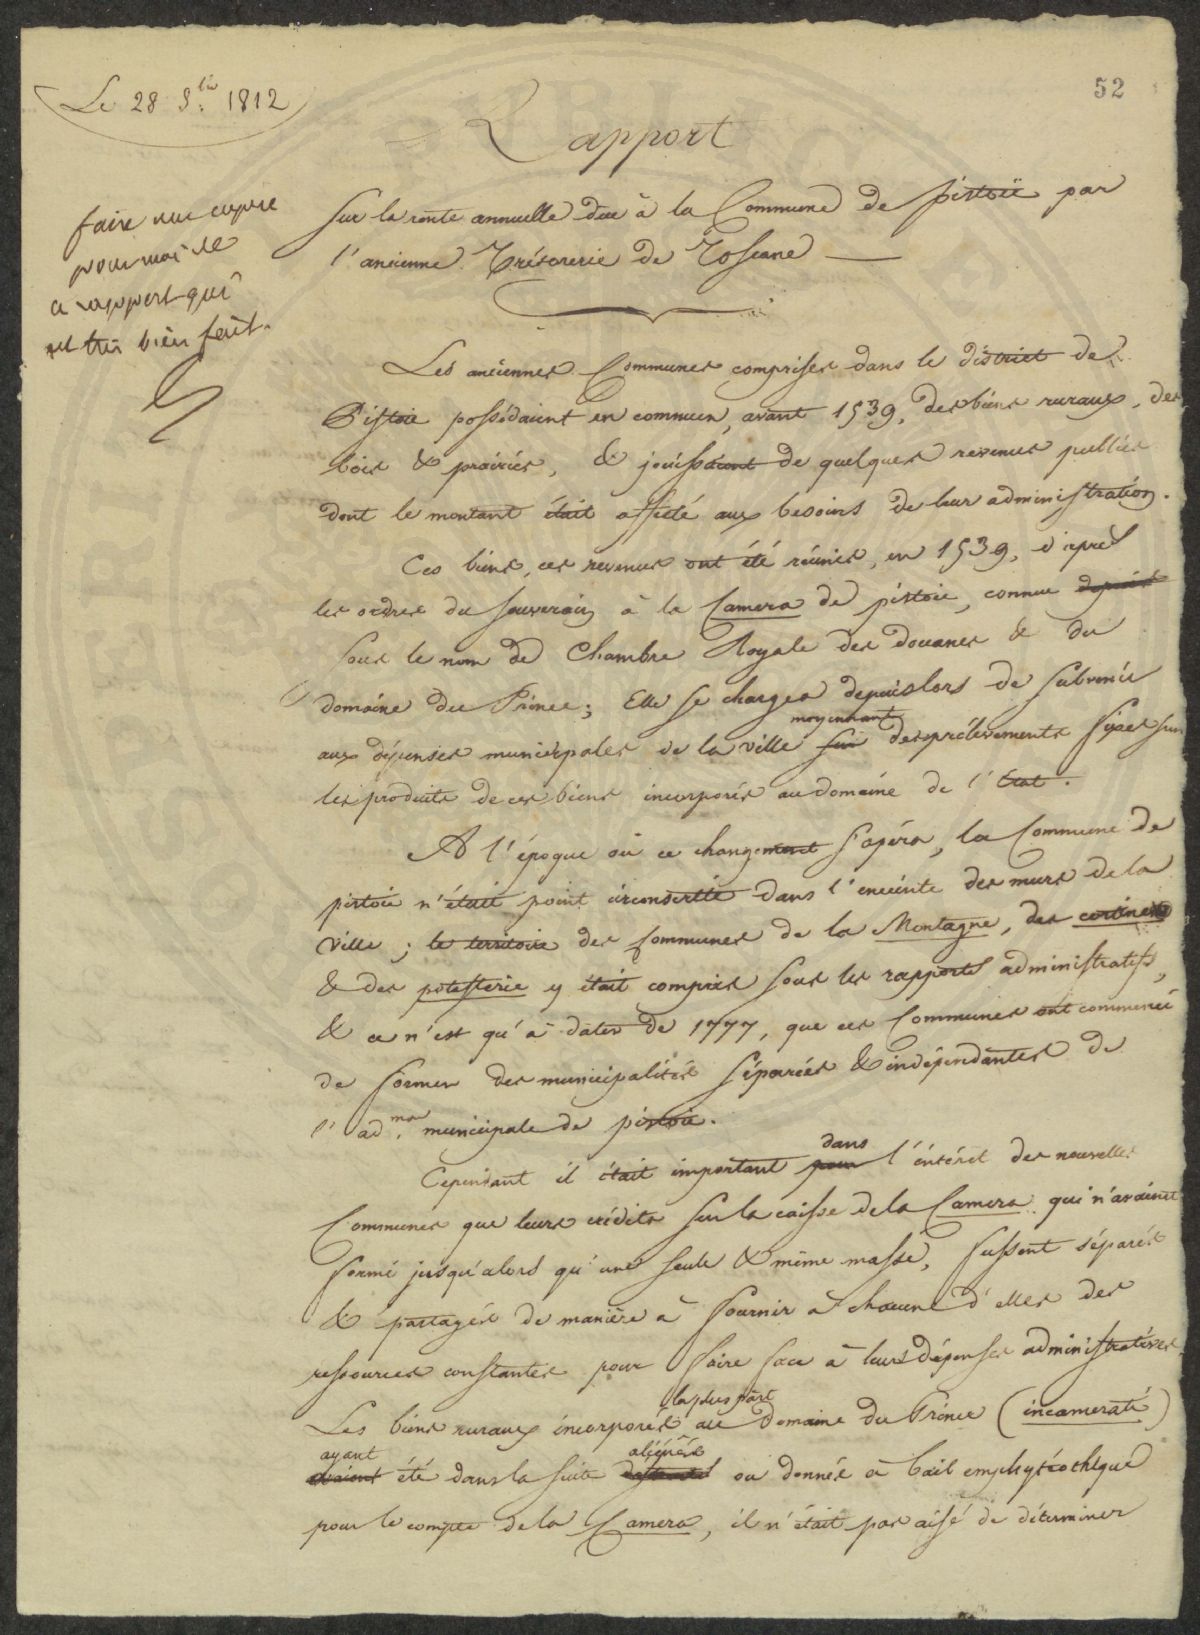 Le 28 9.bre 1812
52
Rapport
faire une copie
pour moi de
ce rapport qui
est très bien fait.
Sur la rente annuelle due à la Commune de Pistoïe par
l'ancienne Trésorerie de Toscane
Les anciennes Communes comprises dans le district de
Pistoie possédaient en commun, avant 1539, des biens ruraux, des
bois & prairies, & jouissaient de quelques revenus publics
dont le montant était affecté aux besoins de leur administration.
Ces biens, ces revenus ont été réunis, en 1539, d'après
les ordres du Souverain à la Camera de pistoie, connue depuis
sous le nom de Chambre Royale des Douanes & du
domaine du Prince; Elle se chargea depuislors de subvenir
aux dépenses municipales de la ville sur moyennant des prélèvements fixes sur
les produits de ces biens incorporés au domaine de l'Etat.
A l'époque où ce changement s'opéra, la Commune de
pistoie n'était point circonscrite dans l'enceinte des murs de la
ville; le territoire des communes de la Montagne, des cortine
& des potesterie y était compris sous les rapports administratifs,
& ce n'est qu'à dater de 1777, que ces Communes ont commencé
de former des municipalités séparées & indépendantes de
l'ad.mon municipale de pistoie.
Cependant il était important pour dans l'intérêt des nouvelles
Communes que leurs crédits sur la caisse de la Camera qui n'avaient
formé jusqu'alors qu'une seule & même masse, fussent séparés
& partagés de manière à fournir à chacune d'elles des
ressources constantes pour faire face à leurs dépenses administratives.
Les biens ruraux incorporés la plus part au Domaine du Prince (incamerati)
ayant été dans la suite aliénés ou donnés à bail emphytéothéque
pour le compte de la Camera, il n'était pas aisé de déterminer